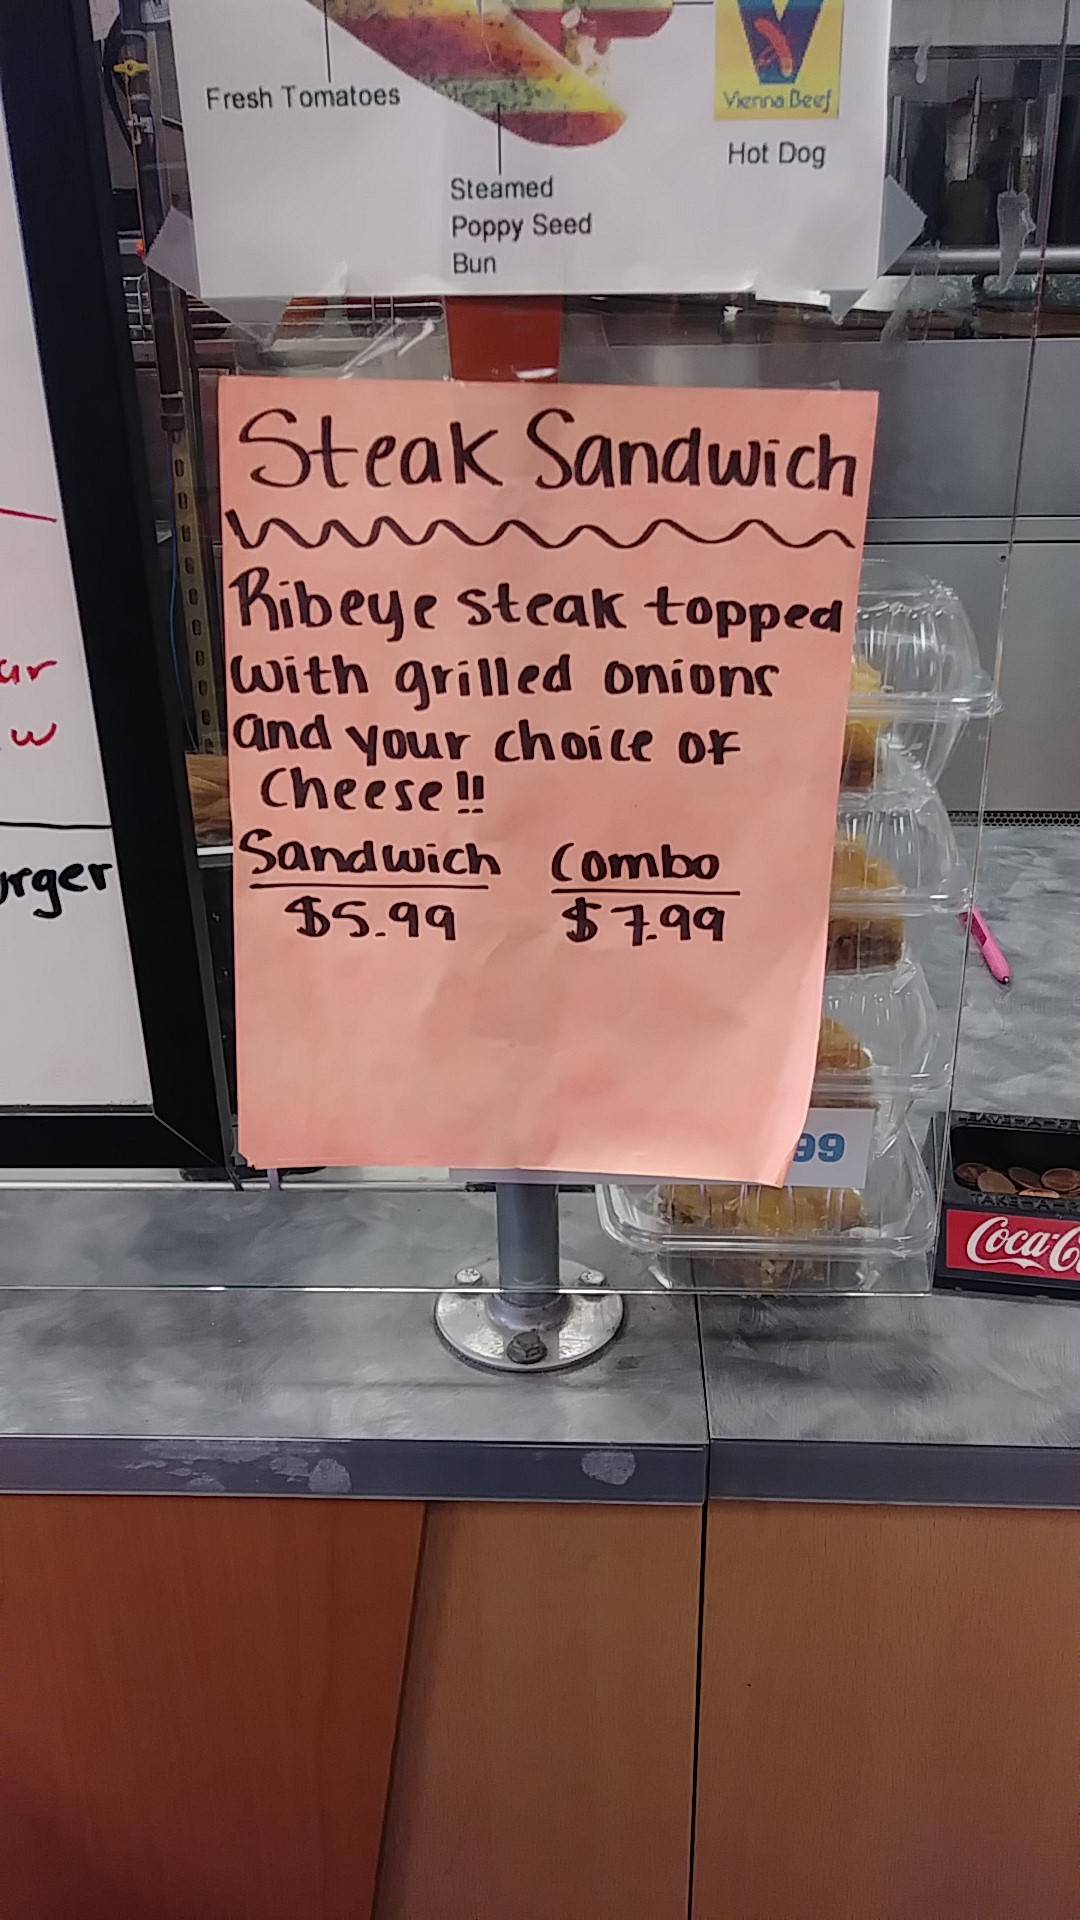 Fresh Tomatoes
Vienna Beef
Hot Dog
Steamed
Poppy Seed
Bun
Steak Sandwich
Ribeye steak topped
with grilled onions
and your choice of
Cheese!!
Sandwich Combo
$5.99 $7.99
99
TAKE-A-
Coca-C